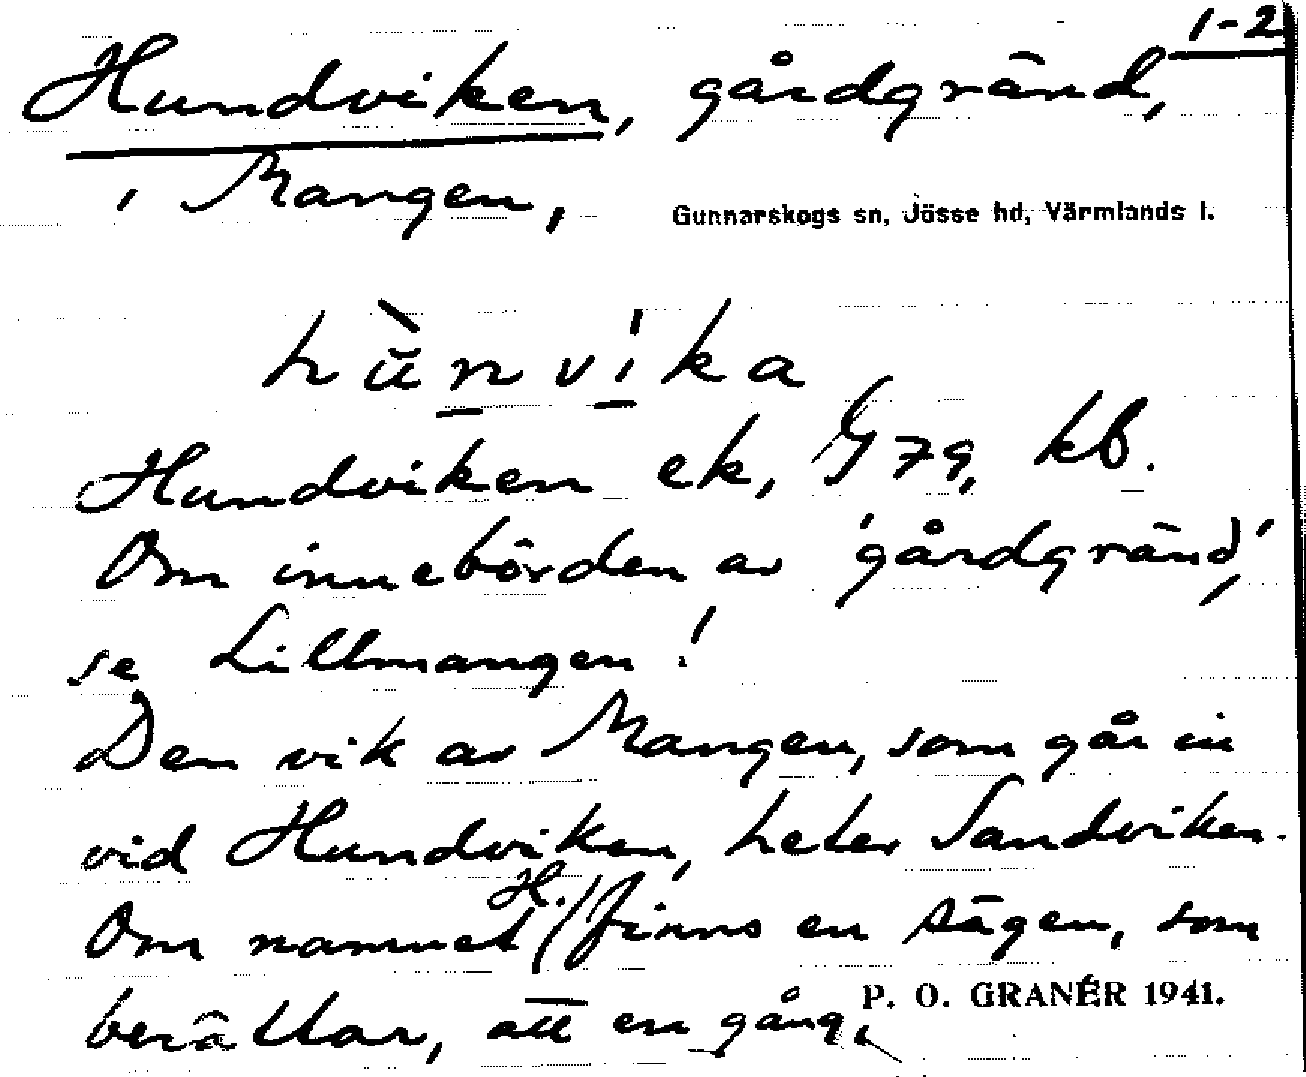 1-2
Hundviken, gårdgränd,
i Mangen,
Gunnarskogs sn, Jösse hd, Värmlands l.
hùnvi'ka
Hundviken ek, G 79, kb.
Om innebörden av 'gårdgränd',
se Lillmangen!
Den vik av Mangen, som går in
vid Hundviken, heter Sandviken.
Om namnet H. finns en sägen, som
berättar, att en gång,
P. O. GRANÉR 1941.